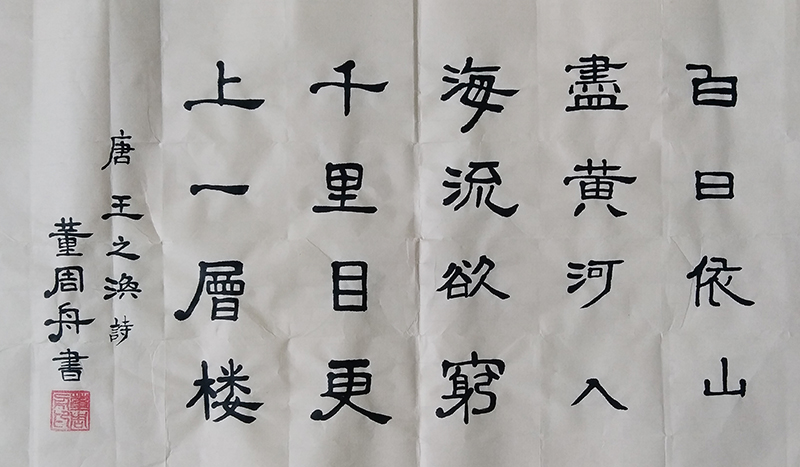 白日依山
盡黄河入
海流欲窮
千里目更
上一層楼
唐王之渙詩
董周舟書